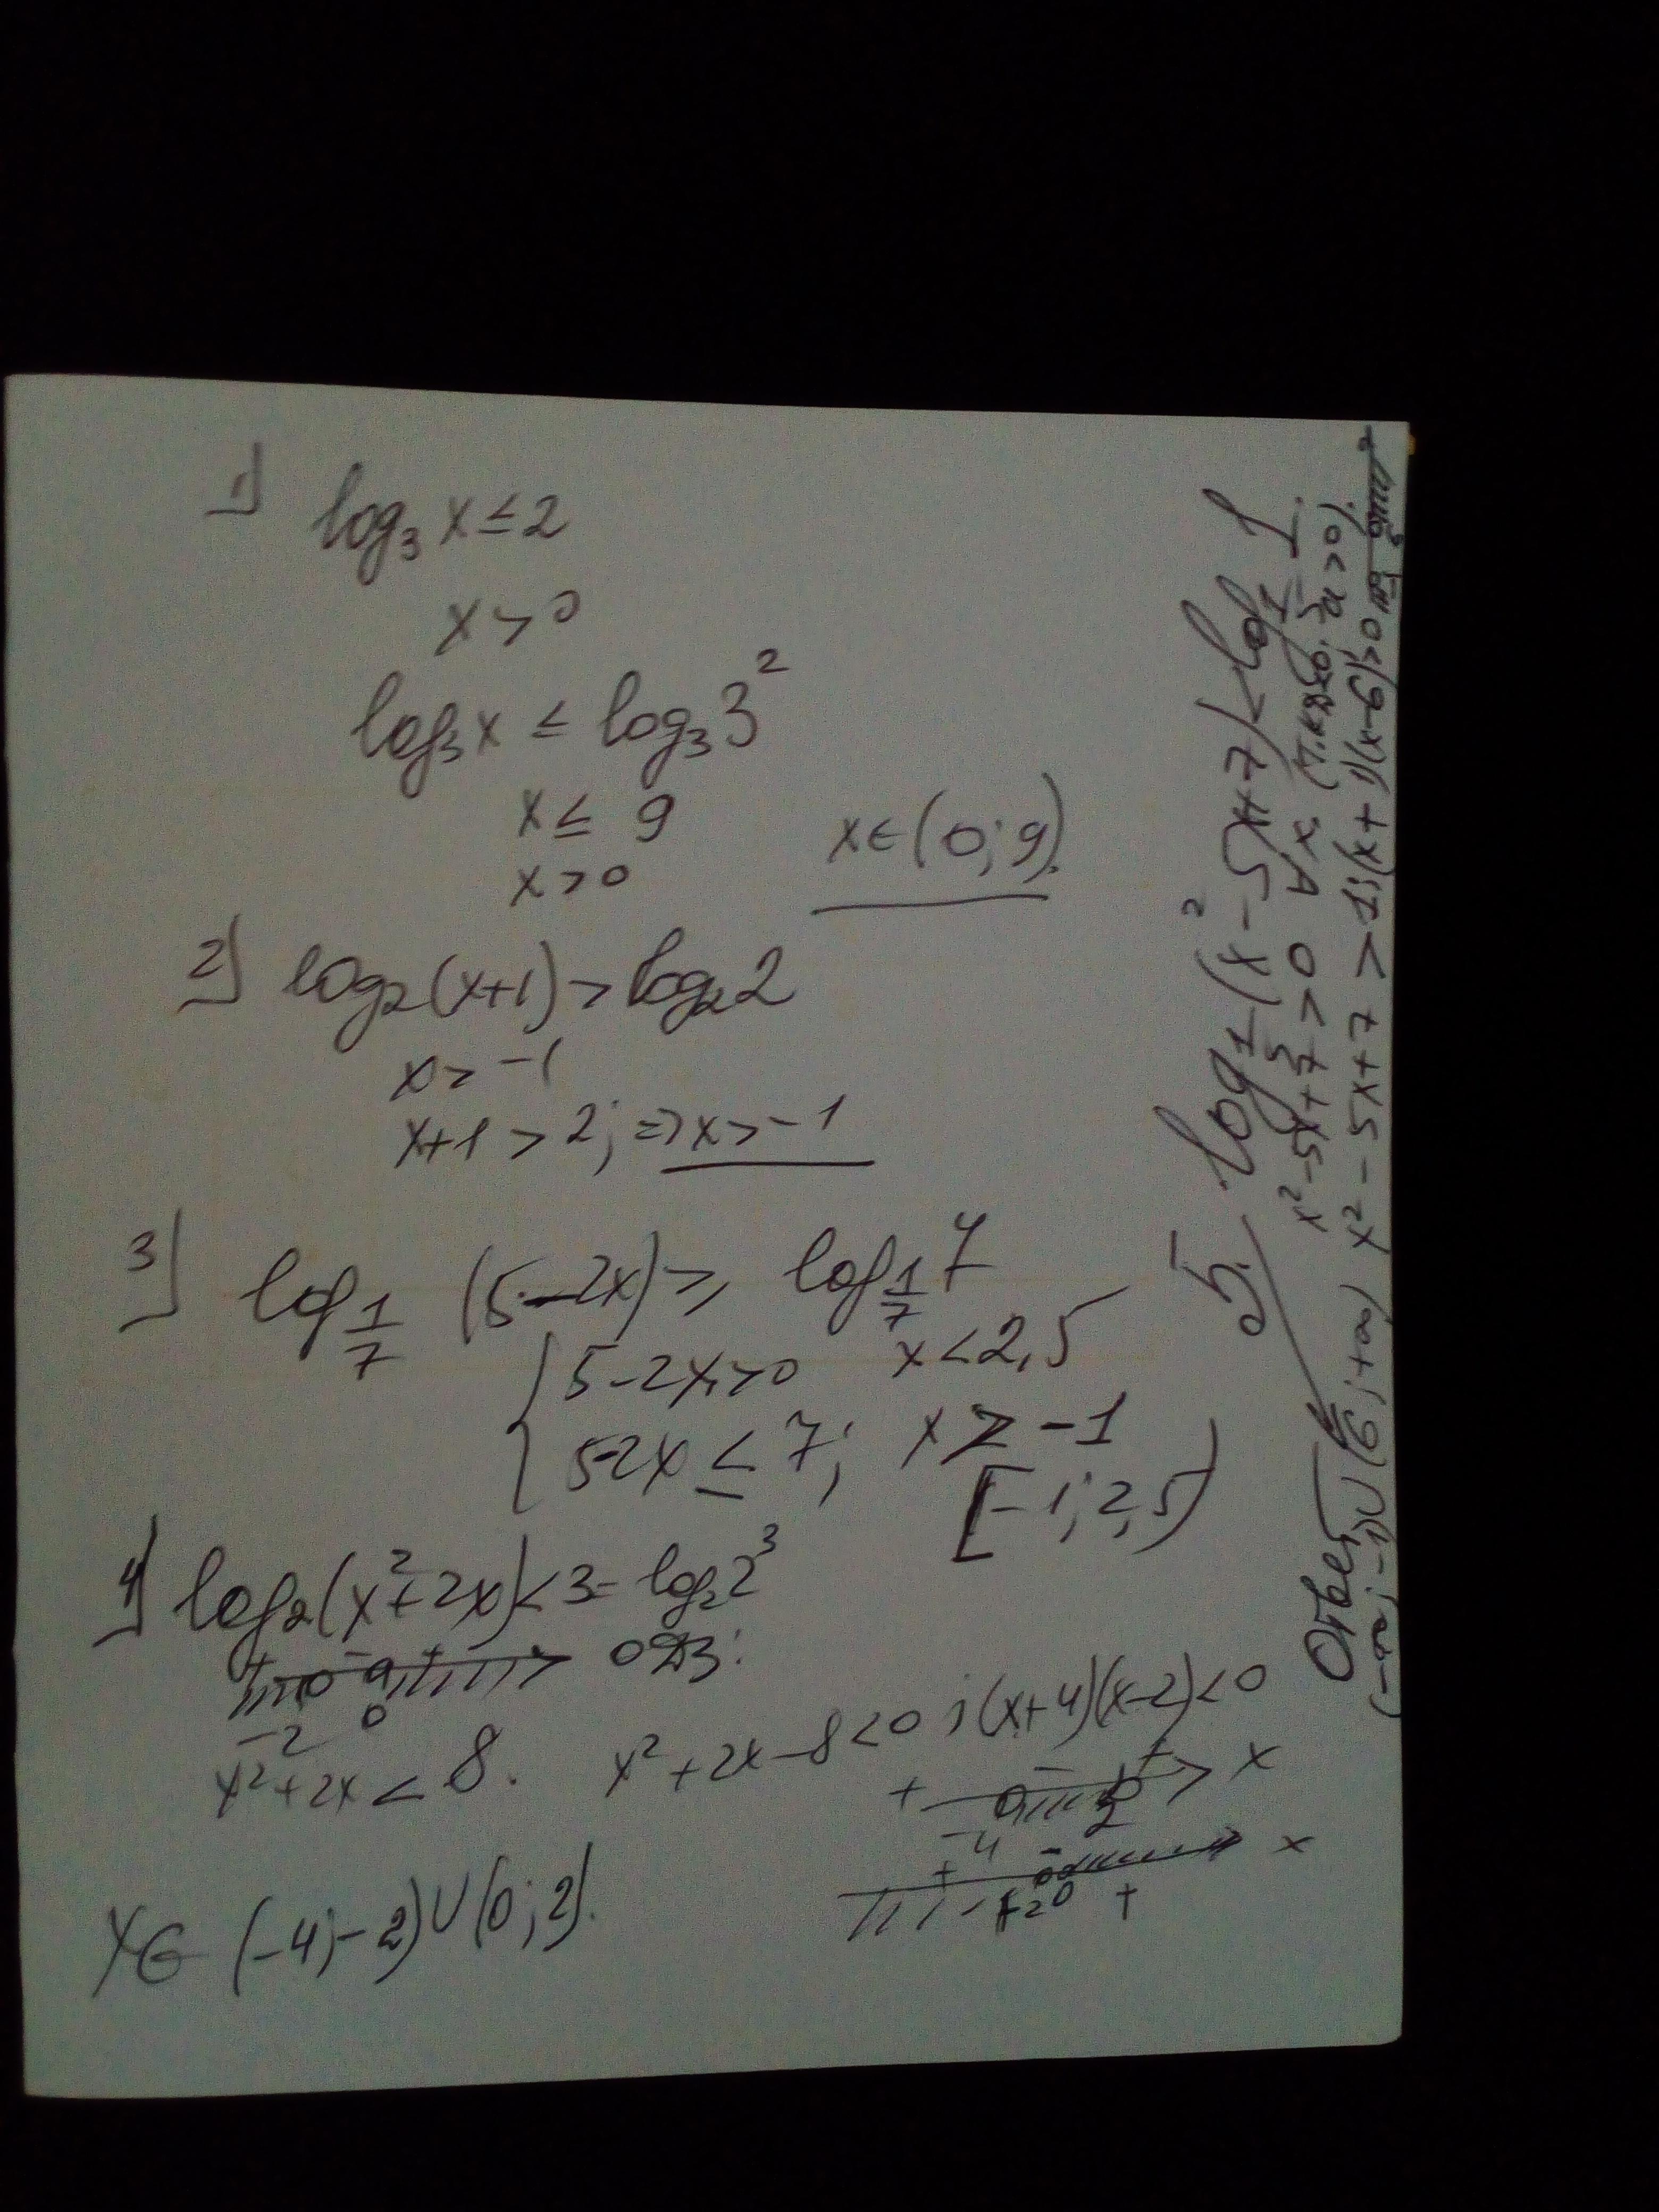 1) log₃ x ≤ 2
x > 0
log₃ x ≤ log₃ 3²
x ≤ 9
x > 0
x ∈ (0; 9).
2) log₂ (x+1) > log₂ 2
x > -1
x+1 > 2; ⇒ x > -1
3) log_{1/7} (5-2x) ≥ log_{1/7} 7
5-2x > 0 x < 2,5
5-2x ≤ 7; x ≥ -1
[-1; 2,5)
4) log₂ (x²+2x) < 3 = log₂ 2³
+ - + ОДЗ:
-2 0
x²+2x < 8. x²+2x-8 < 0; (x+4)(x-2) < 0
+ - + x
-4 2
+ - x
-2 0 +
x ∈ (-4; -2) ∪ (0; 2).
5. log_{1/5} (x²-5x+7) < log_{1/5} 1
x²-5x+7 > 0 ∀ x. (т.к. D<0; a>0).
x²-5x+7 > 1; (x+1)(x-6) > 0
Ответ
(-∞; -1) ∪ (6; +∞)